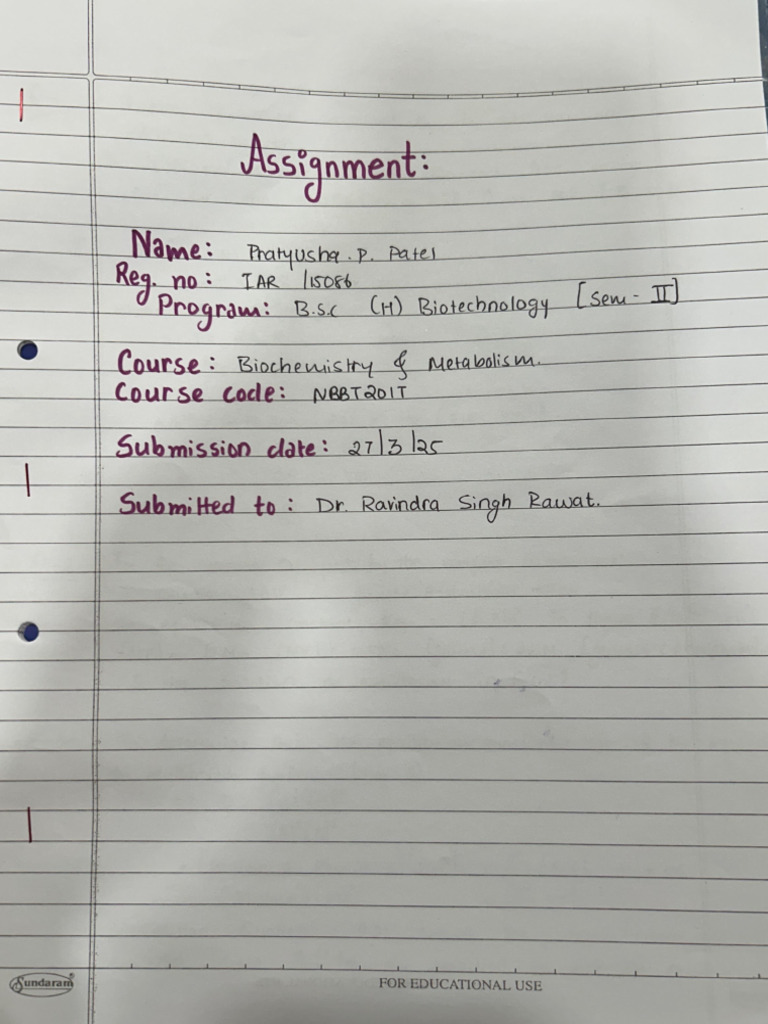 Assignment:
Name: Pratyusha.P. Patel
Reg. no: IAR /15086
Program: B.S.C (H) Biotechnology [Sem - II]
Course: Biochemistry & Metabolism.
Course code: NBBT201T
Submission date: 27/3/25
Submitted to: Dr. Ravindra Singh Rawat.
Sundaram®
FOR EDUCATIONAL USE